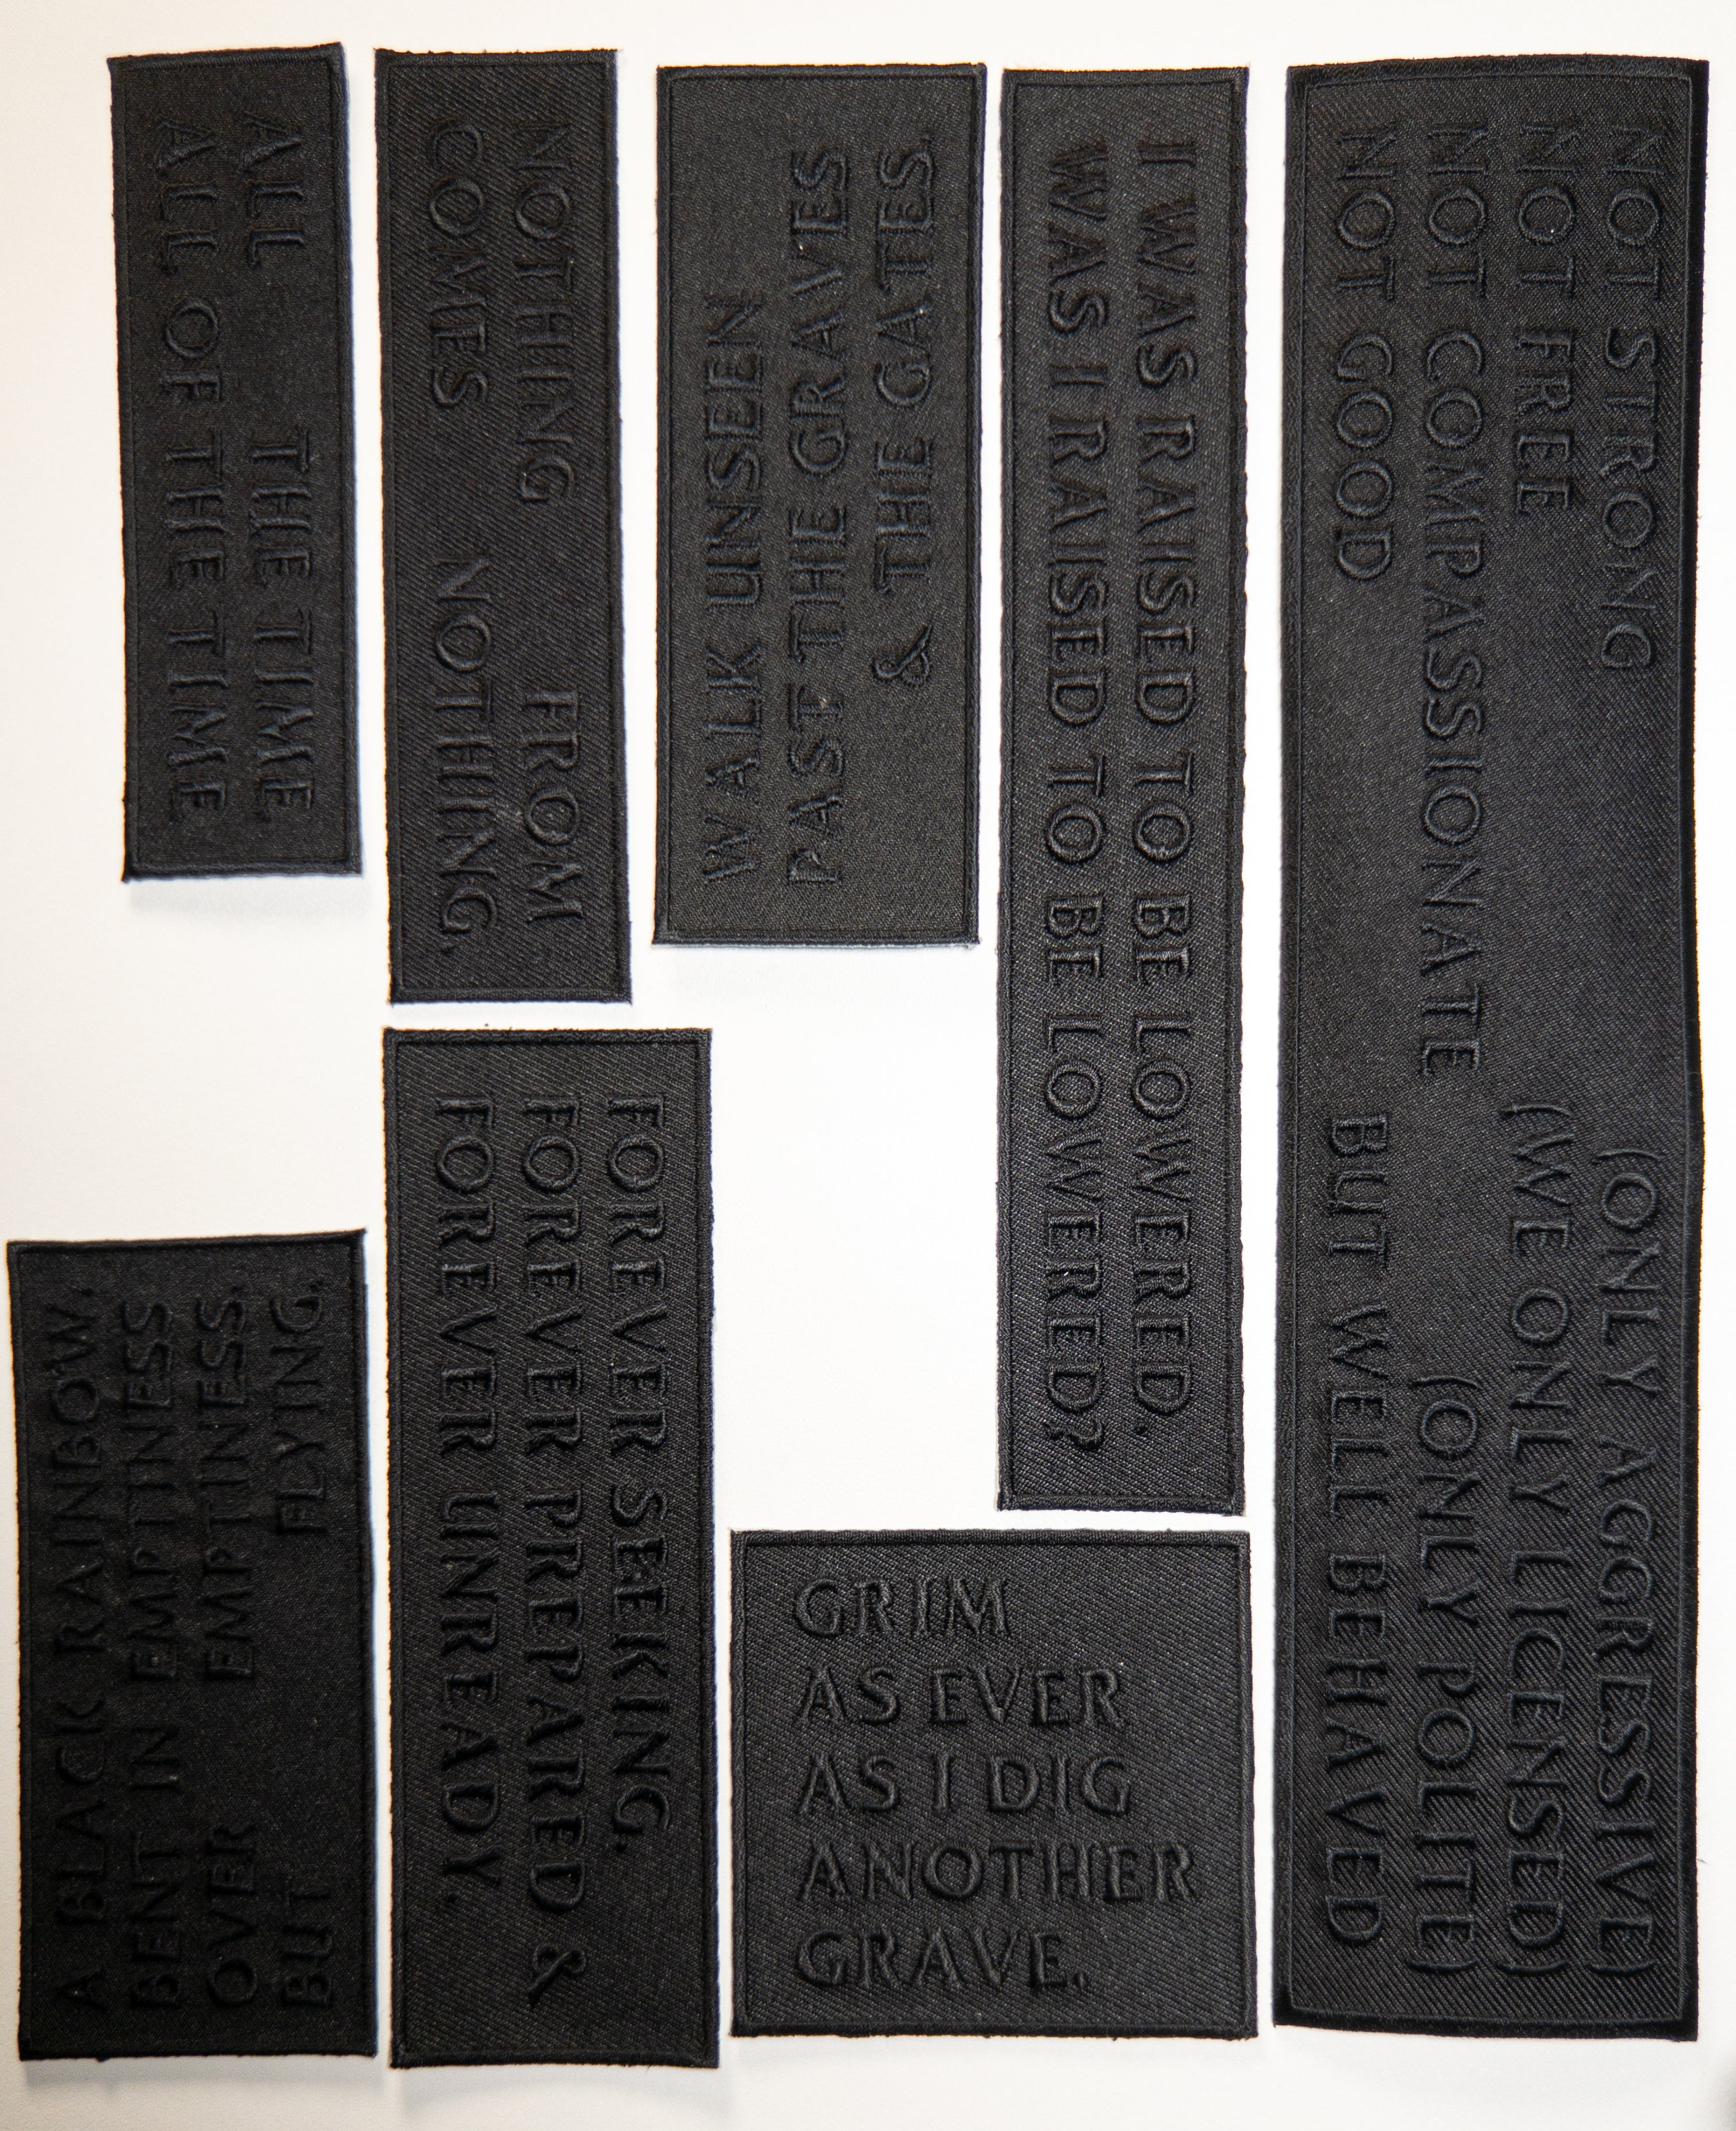 ALL THE TIME
ALL OF THE TIME
NOTHING FROM
COMES NOTHING.
WALK UNSEEN
PAST THE GRAVES
& THE GATES.
I WAS RAISED TO BE LOWERED.
WAS I RAISED TO BE LOWERED?
NOT STRONG (ONLY AGGRESSIVE)
NOT FREE (WE ONLY LICENSED)
NOT COMPASSIONATE (ONLY POLITE)
NOT GOOD BUT WELL BEHAVED
A BLACK RAINBOW,
BENT IN EMPTINESS
OVER EMPTINESS,
BUT FLYING.
FOREVER SEEKING,
FOREVER PREPARED &
FOREVER UNREADY.
GRIM
AS EVER
AS I DIG
ANOTHER
GRAVE.